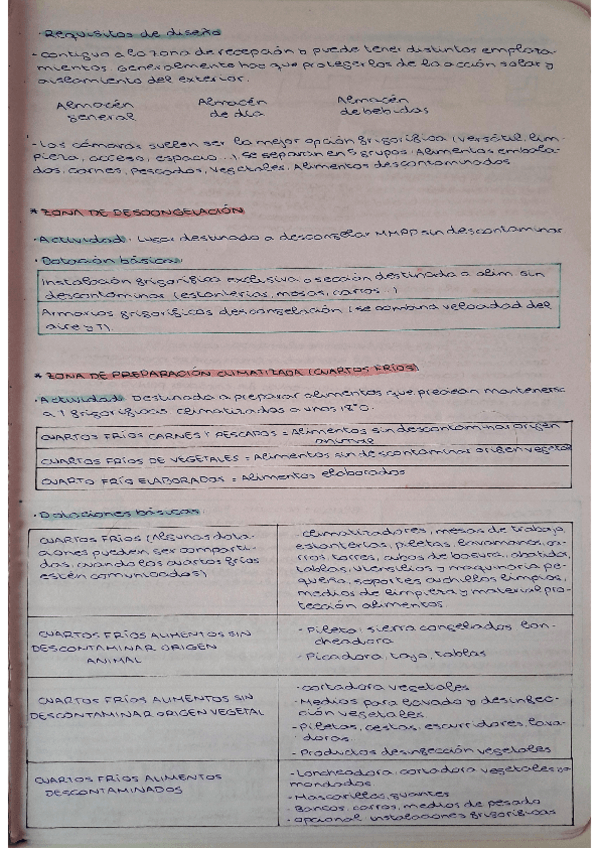 · Requisitos de diseño
· Contiguo a la zona de recepción o puede tener distintos emplaza-
mientos. Generalmente hay que protegerlos de la acción solar y
aislamiento del exterior.
Almacén general
Almacén de día
Almacén de bebidas
· Las cámaras suelen ser la mejor opción frigorífica (versátil, lim-
pieza, acceso, espacio...), se separan en 5 grupos: Alimentos embala-
dos, carnes, Pescados, Vegetales, Alimentos descontaminados
* ZONA DE DESCONGELACIÓN
· Actividad: Lugar destinado a descongelar MMPP sin descontaminar
· Dotación básica:
Instalación frigorífica exclusiva o sección destinada a alim. sin
descontaminar (estanterías, mesas, carros...)
Armarios frigoríficos descongelación (se combina velocidad del
aire y T).
* ZONA DE PREPARACIÓN CLIMATIZADA (CUARTOS FRÍOS)
· Actividad: Destinada a preparar alimentos que precisan mantenerse
a T frigoríficas climatizados a unos 18°C.
CUARTOS FRÍOS CARNES Y PESCADOS = Alimentos sin descontaminar origen
animal
CUARTOS FRÍOS DE VEGETALES = Alimentos sin descontaminar origen vegetal
CUARTO FRÍO ELABORADOS = Alimentos elaborados
· Dotaciones básicas
CUARTOS FRÍOS (Algunas dota-
ciones pueden ser comparti-
das, cuando los cuartos fríos
estén comunicados)
· Climatizadores, mesas de trabajo,
estanterías, piletas, lavamanos, ca-
rros, torres, cubos de basura, abatidor,
tablas, utensilios y maquinaria pe-
queña, soportes cuchillos limpios,
medios de limpieza y material pro-
tección alimentos
CUARTOS FRÍOS ALIMENTOS SIN
DESCONTAMINAR ORIGEN
ANIMAL
· Pileta, sierra congelados, lon-
cheadora
· Picadora, tajo, tablas
CUARTOS FRÍOS ALIMENTOS SIN
DESCONTAMINAR ORIGEN VEGETAL
· Cortadora vegetales
· Medios para lavado y desinfec-
ción vegetales
· Piletas, cestas, escurridores, lava-
doras.
· Productos desinfección vegetales
CUARTOS FRÍOS ALIMENTOS
DESCONTAMINADOS
· Loncheadora, cortadora vegetales ya
mondados
· Mascarillas, guantes
· Bancos, carros, medios de pesado
· Opcional: instalaciones frigoríficas